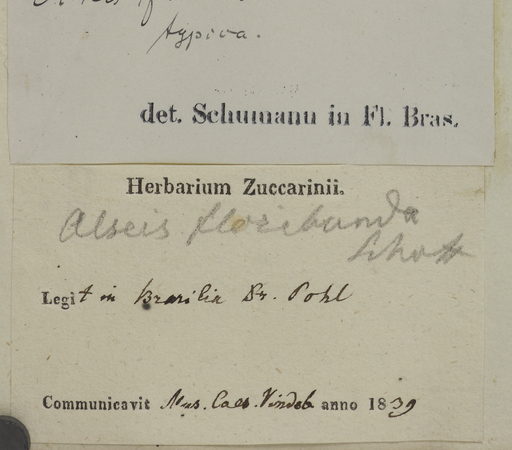 typica.
det. Schumann in Fl. Bras.
Herbarium Zuccarinii.
Alseis floribunda
Schott
Legit in Brasilia Dr. Pohl
Communicavit Mus. Caes. Vindob anno 1839